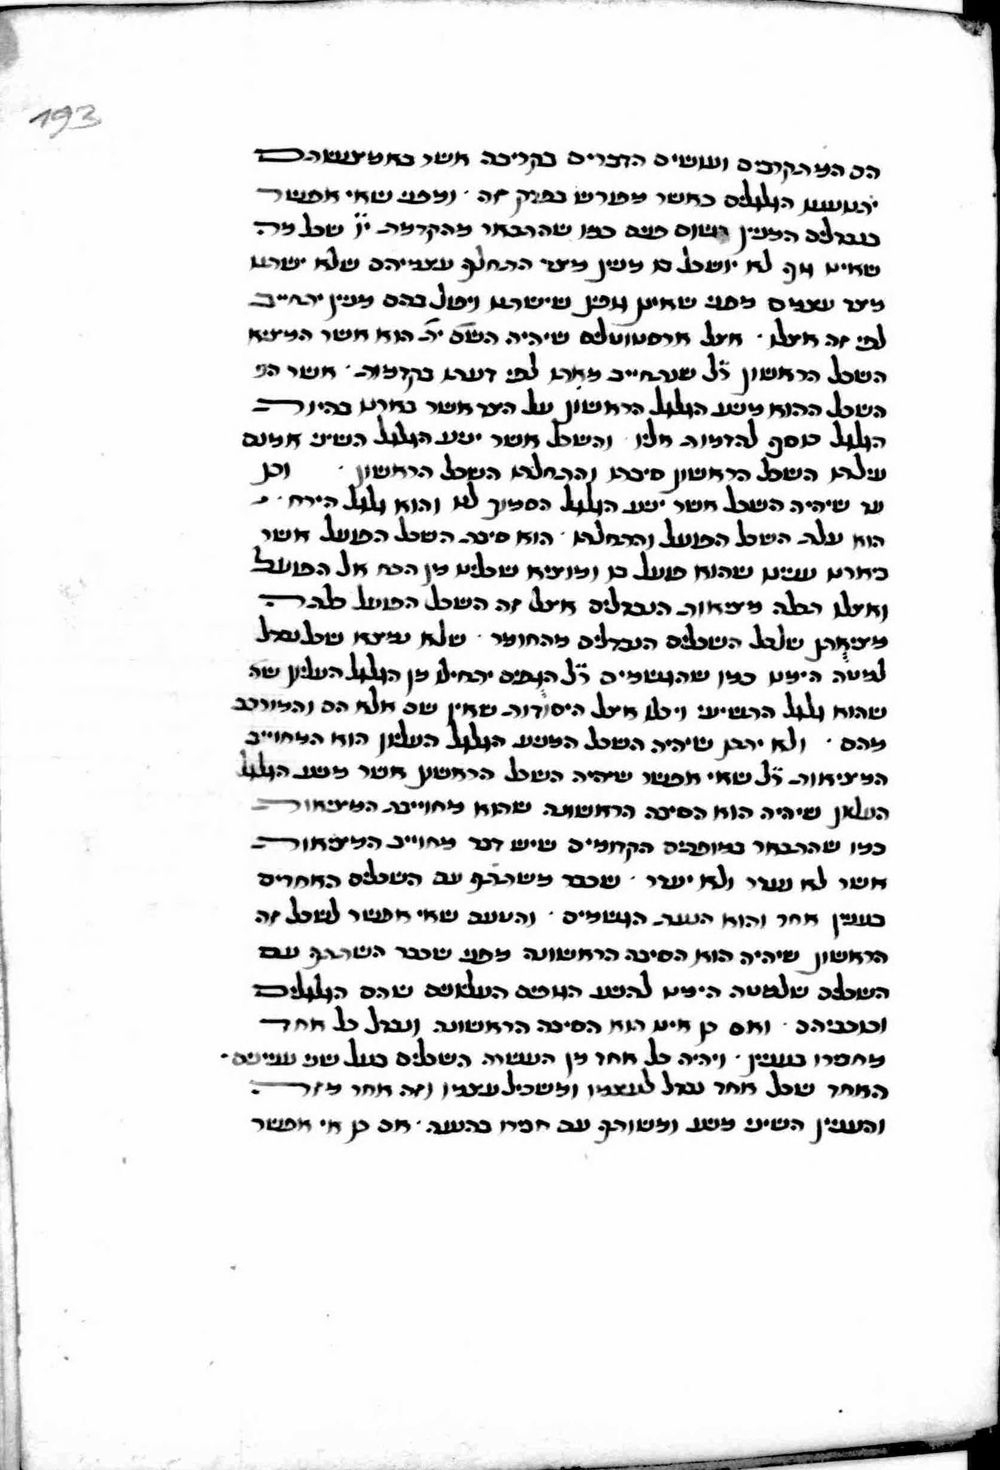 193
הם המתקרבים ועושים הדברים בקריבה אשר באמצעותם
יתנועעו הגלגלים כאשר מפורש בפרק זה · ומפני שאי אפשר
בנבדלים המנין בשום פנים כמו שהתבאר מהקדמת י״ו שכל מה
שאינו גוף לא יושכל בו מנין מצד התחלף עצמיהם שלא ישתנו
מצד עצמם מפני שאינן גופין שישתנו ויפול בהם מנין יתחייב
לפי זה אצלו · אצל ארסטוטליס שיהיה השם ית׳ הוא אשר המציא
השכל הראשון ר״ל שנתחייב מאתו לפי דעתו בקדמות · אשר הניע
השכל ההוא מניע הגלגל הראשון על הצד אשר בארנו בהיות
הגלגל נכסף להדמות אליו · והשכל אשר יניע הגלגל השיני אמנם
עילתו השכל הראשון סיבתו והתחלתו השכל הראשון · וכן
עד שיהיה השכל אשר יניע הגלגל הסמוך לנו והוא גלגל הירח ·
הוא עלת השכל הפועל והתחלתו · הוא סיבת השכל הפועל אשר
ביארנו עניינו שהוא פועל בנו ומוציא שכלינו מן הכח אל הפועל
ואצלו תכלה מציאות הנבדלים אצל זה השכל הפועל תכלה
מציאותן שלכל השכלים הנבדלים מהחומר · שלא ימצא שכל נבדל
למטה הימנו כמו שהגשמים ר״ל הגופים יתחילו מן הגלגל העליון
שהוא גלגל התשיעי ויכלו אצל היסודות שאין שם אלא הם והמורכב
מהם · ולא יתכן שיהיה השכל המניע הגלגל העליון הוא המחוייב
המציאות ר״ל שאי אפשר שיהיה השכל הראשון אשר מניע הגלגל
העליון שיהיה הוא הסיבה הראשונה שהוא מחוייב המציאות
כמו שהתבאר במופתים הקדומים שיש דבר מחוייב המציאות
אשר לא נעדר ולא יעדר · שכבר משתתף עם השכלים האחרים
בענין אחד והוא הנעת הגשמים · והטעם שאי אפשר לשכל זה
הראשון שיהיה הוא הסיבה הראשונה מפני שכבר השתתף עם
השכלים שלמטה הימנו להניע הגופים העליונים שהם הגלגלים
וכוכביהם · ואם כן אינו הוא הסיבה הראשונה ונבדל כל אחד
מחברו בענין · ויהיה כל אחד מן העשרה השכלים בעל שני עניינים ·
האחד שכל אחד נבדל לעצמו ומשכיל עצמו וזה אחד מזה
והענין השיני מניע ומשותף עם חברו בהנעה · אם כן אי אפשר